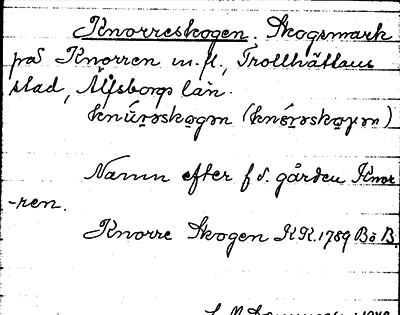 Knorreskogen. Skogsmark
på Knorren m. fl., Trollhättans
stad, Älfsborgs län.
knúrǝskǫgǝn (knǿrǝskǫgǝn)
Namn efter f d. gården Knor
-ren.
Knorre Skogen KK. 1789 Bö B.